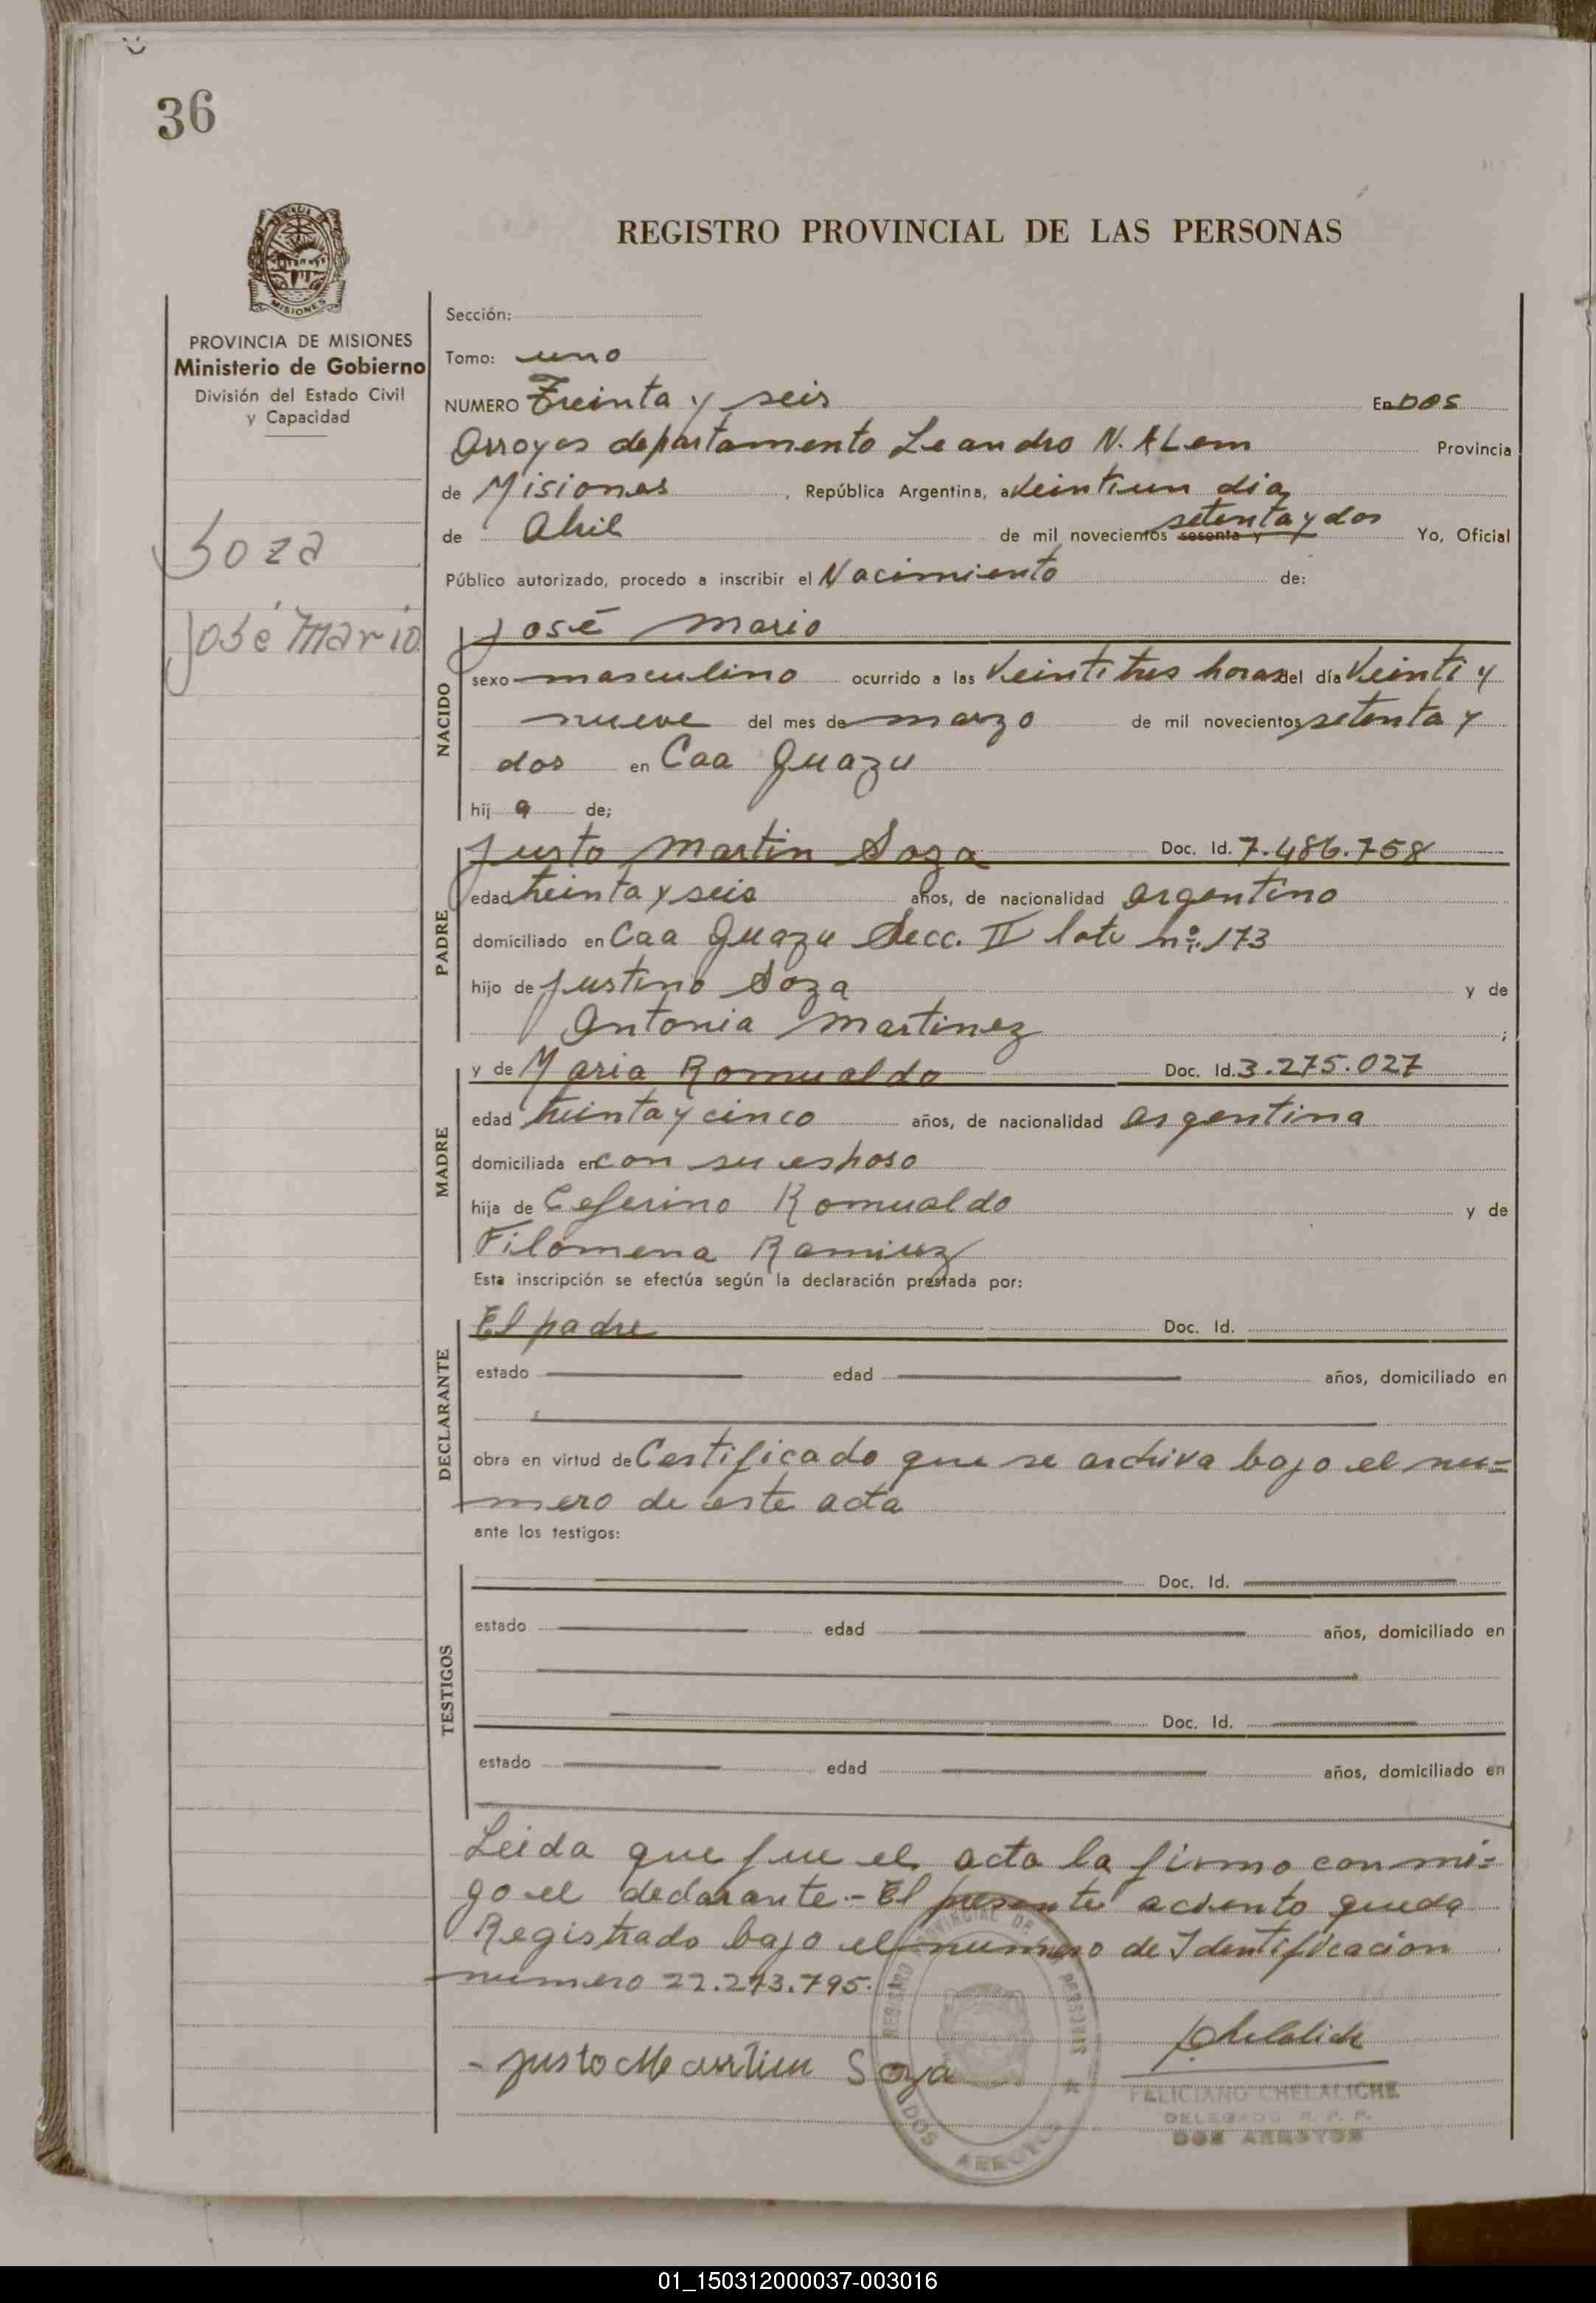 36
REGISTRO PROVINCIAL DE LAS PERSONAS
MISIONES
PROVINCIA DE MISIONES
Ministerio de Gobierno
División del Estado Civil
y Capacidad
Soza
José Mario
Sección:
Tomo: uno
NUMERO Treinta y seis En DOS
Arroyos departamento Leandro N. ALem Provincia
de Misiones, República Argentina, a Veintiun dia
de Abril de mil novecientos sesenta y setenta y dos Yo, Oficial
Público autorizado, procedo a inscribir el Nacimiento de:
NACIDO
José Mario
sexo masculino ocurrido a las Veintitres horas del día Veinti y
nueve del mes de marzo de mil novecientos setenta y
dos en Caa Guazu
hij o de;
PADRE
Justo Martin Soza Doc. Id. 7.486.758
edad treinta y seis años, de nacionalidad argentino
domiciliado en Caa Guazu Secc. II lote nº 173
hijo de Justino Soza y de
Antonia Martinez ;
MADRE
y de Maria Romualdo Doc. Id. 3.275.027
edad treinta y cinco años, de nacionalidad argentina
domiciliada en con su esposo
hija de Ceferino Romualdo y de
Filomena Ramirez
Esta inscripción se efectúa según la declaración prestada por:
DECLARANTE
El padre Doc. Id.
estado edad años, domiciliado en
obra en virtud de Certificado que se archiva bajo el nu=
mero de este acta
ante los testigos:
TESTIGOS
Doc. Id.
estado edad años, domiciliado en
Doc. Id.
estado edad años, domiciliado en
Leida que fue el acta la firmo conmi=
go el declarante.- El presente aciento queda
Registrado bajo el numero de Identificacion
numero 22.273.795.
- Justo Martin Soza
Chelalich
FELICIANO CHELALICHE
DELEGADO R. P. P.
DOS ARROYOS
REGISTRO PROVINCIAL DE LAS PERSONAS
DOS ARROYOS
01_150312000037-003016